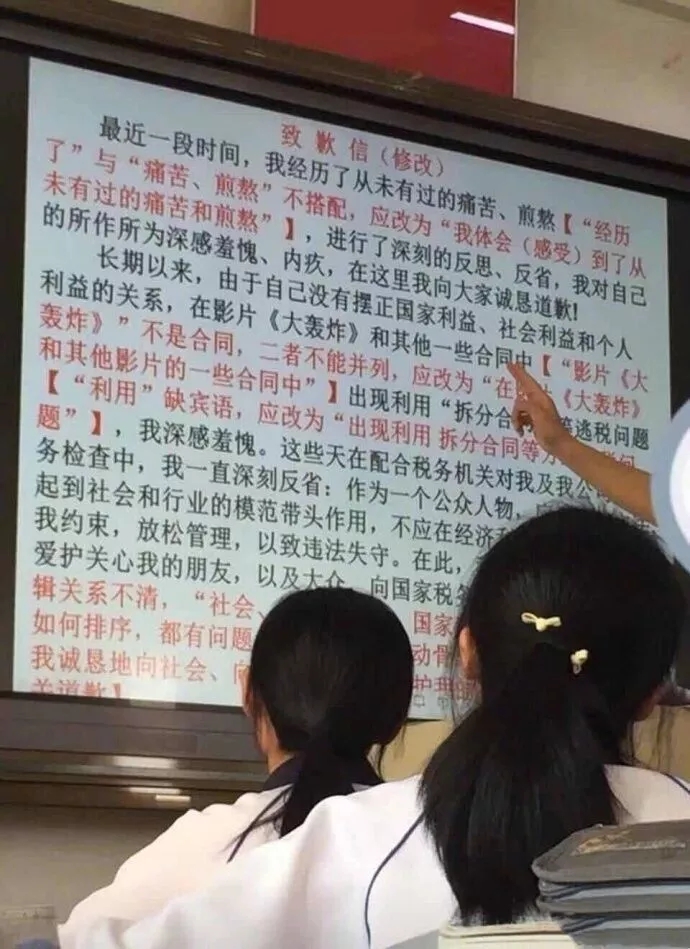 致歉信（修改）
最近一段时间，我经历了从未有过的痛苦、煎熬【“经历
了”与“痛苦、煎熬”不搭配，应改为“我体会（感受）到了从
未有过的痛苦和煎熬”】，进行了深刻的反思、反省，我对自己
的所作所为深感羞愧、内疚，在这里我向大家诚恳道歉!
长期以来，由于自己没有摆正国家利益、社会利益和个人
利益的关系，在影片《大轰炸》和其他一些合同中【“影片《大
轰炸》”不是合同，二者不能并列，应改为“在 《大轰炸》
和其他影片的一些合同中”】出现利用“拆分合同 逃税问题
【“利用”缺宾语，应改为“出现利用 拆分合同等方
题”】，我深感羞愧。这些天在配合税务机关对我及我公
务检查中，我一直深刻反省：作为一个公众人物，
起到社会和行业的模范带头作用，不应在经济
我约束，放松管理，以致违法失守。在此，
爱护关心我的朋友，以及大众 向国家税务
辑关系不清，“社会、 国家
如何排序，都有问题 动
我诚恳地向社会、 护理的
关道歉】